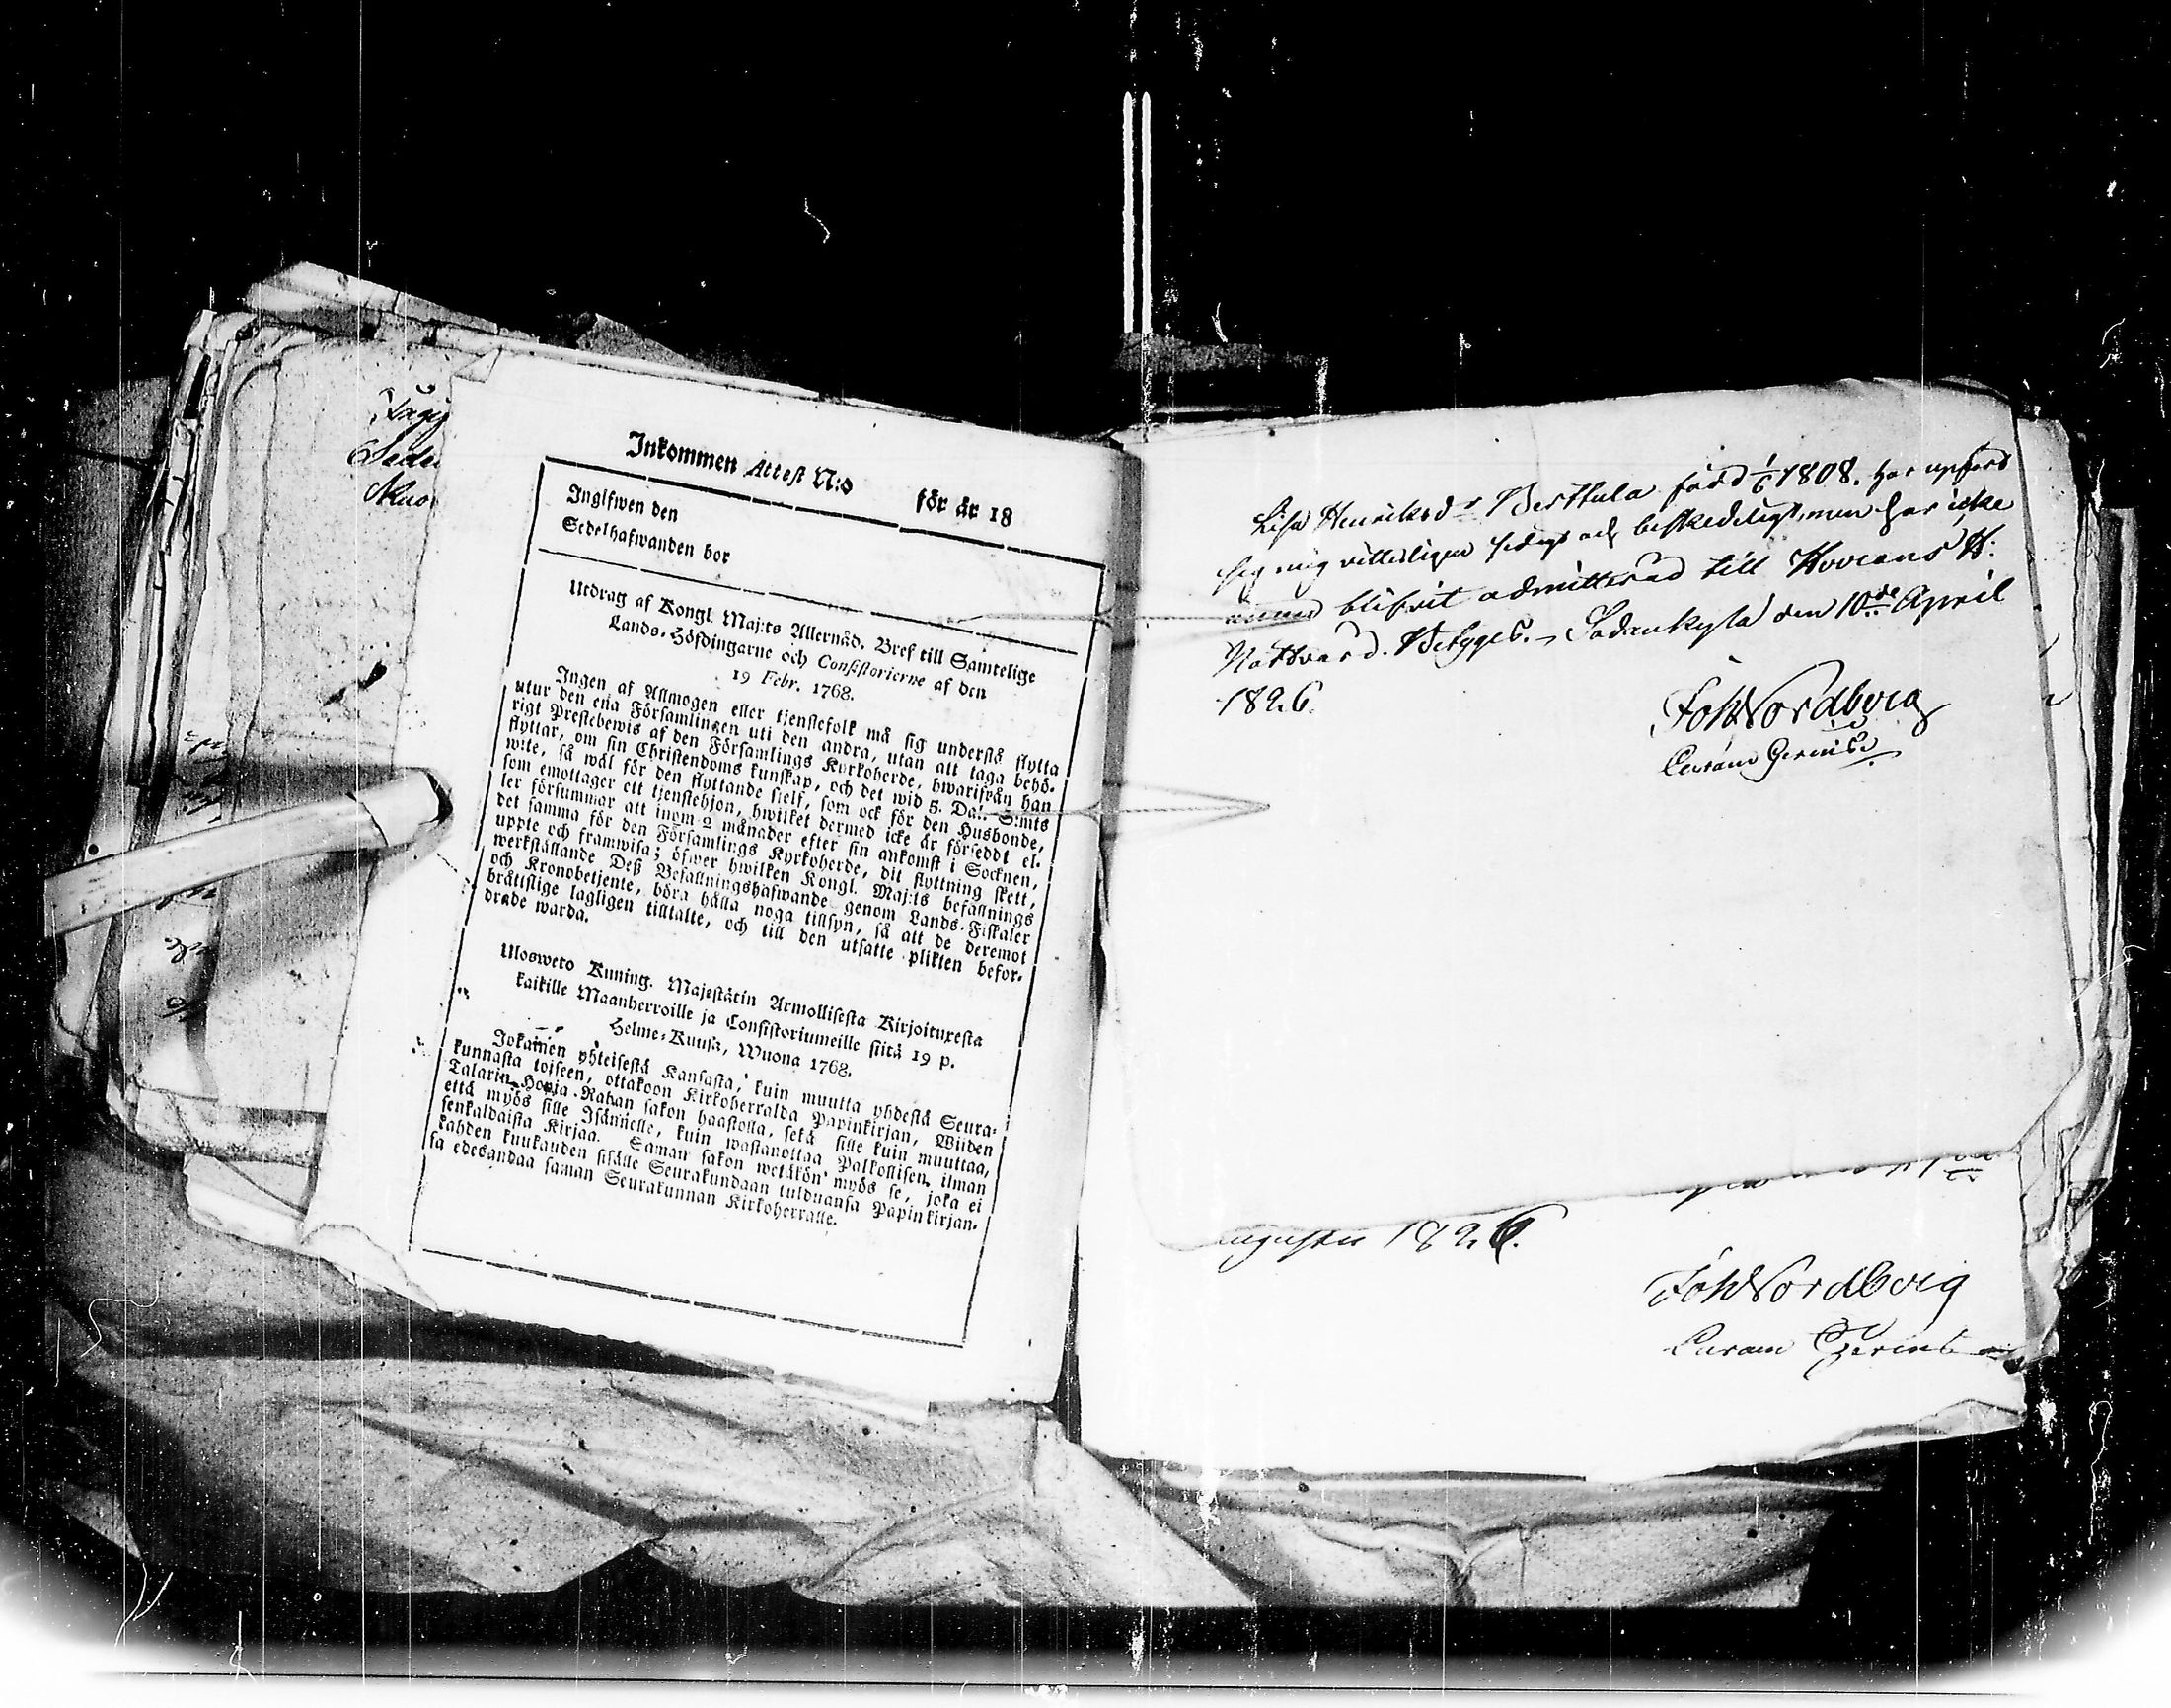 Inkommen Attest N:o för år 18
Inglfwen den
Sedelhafwanden bor
Utdrag af Kongl. Maj:ts Allernåd. Bref till Samtelige
Lands-Höfdingarne och Consistorierne af den
19 Febr. 1768.
Ingen af Allmogen eller tjenstefolk må sig understå flytta
utur den ena Församlingen uti den andra, utan att taga behö-
rigt Prestebewis af den Församlings Kyrkoherde, hwarifrån han
flyttar, om sin Christendoms kunskap, och det wid 5. Dal. S:mts
wite, så wäl för den flyttande sjelf, som ock för den Husbonde,
som emottager ett tjenstehjon, hwilket dermed icke är förseddt el-
ler försummar att inom 2 månader efter sin ankomst i Socknen,
det samma för den Församlings Kyrkoherde, dit flyttning skett,
uppte och framwisa; öfwer hwilken Kongl. Maj:ts befallnings
werkställande Deß Befallningshafwande genom Lands-Fiskaler
och Kronobetjente, böra hålla noga tillsyn, så att de deremot
bråttslige lagligen tilltalte, och till den utsatte plikten befor-
drade warda.
Ulosweto Kuning. Majestätin Armollisesta Kirjoituxesta
kaikille Maanherroille ja Consistoriumeille siitä 19 p.
Helme-Kuusa, Wuona 1768.
Jokainen yhteisestä Kansasta, kuin muutta yhdestä Seura-
kunnasta toiseen, ottakoon Kirkoherralda Papinkirjan, Wiiden
Talarin Hopia-Rahan sakon haastolla, sekä sille kuin muuttaa,
että myös sille Isännelle, kuin wastanottaa Palkollisen ilman
senkaldaista Kirjaa. Saman sakon wetäkön myös se, joka ei
kahden kuukauden sisälle Seurakundaan tulduansa Papinkirjan-
sa edesandaa saman Seurakunnan Kirkoherralle.
Lisa Henriksdr Berttula född 1/6 1808. har upfört
sig mig vitterligen sedigt och beskedeligt, men har icke
ännu blifvit admitterad till Hovrans H:
Nattvard. Betygas. Sodankylä den 10de April
1826.
Joh Nordberg
Curam Gerens
Augusti 1826.
Joh Nordberg
Curam Gerens